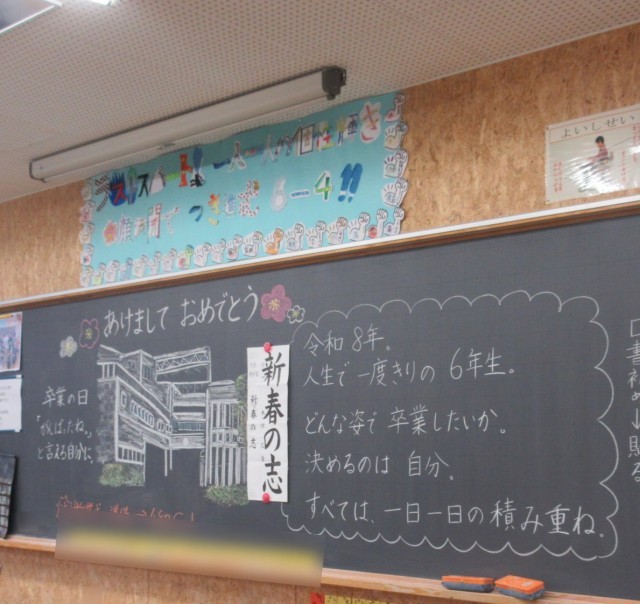 ラストスパート!! 一人一人の個性輝き
瀬戸際で つき進む 6-4!!
よいしせい
あけまして おめでとう
卒業の日
「がんばったね。」
と言える自分に
新春の志
新春の志
令和8年。
人生で一度きりの 6年生。
どんな姿で 卒業したいか。
決めるのは 自分。
すべては、一日一日の積み重ね。
書初め↓貼る